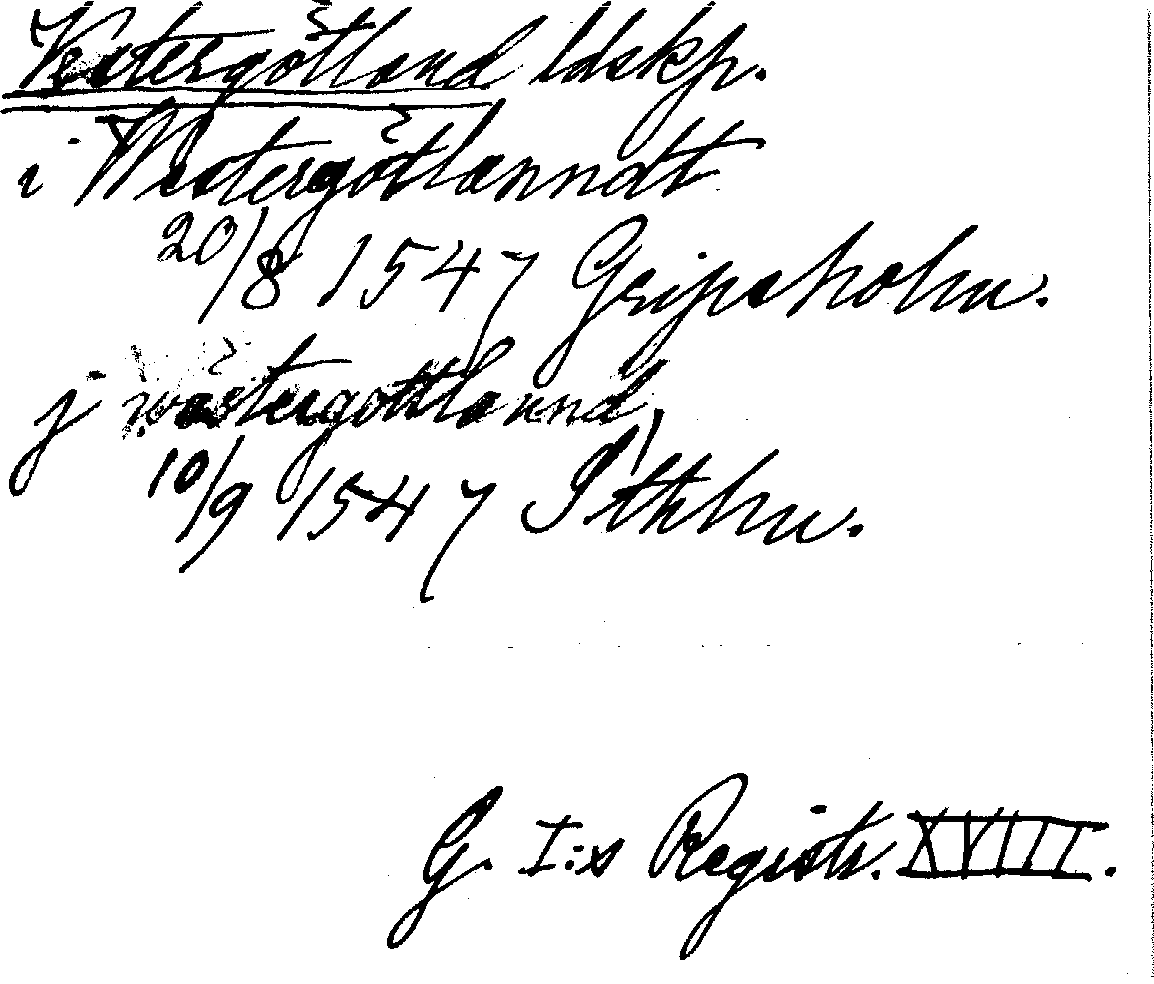 Vestergötland ldskp.
i Westergötlanndt
20/8 1547 Gripsholm.
j wästergöttlannd,
10/9 1547 Sthlm.
G. I:s Registr. XVIII.